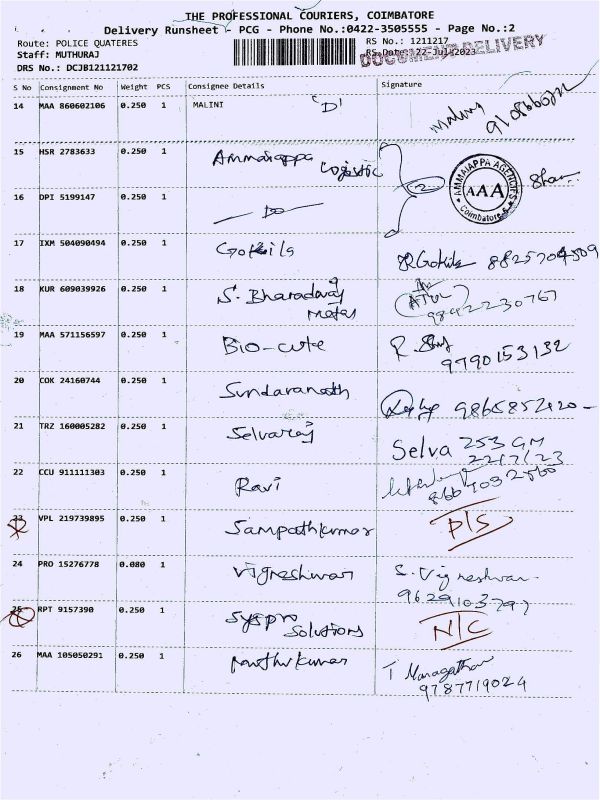 THE PROFESSIONAL COURIERS, COIMBATORE
Delivery Runsheet - PCG - Phone No.:0422-3505555 - Page No.:2
Route: POLICE QUATERES
RS No.: 1211217
Staff: MUTHURAJ
RS Date: 22-Jul-2023
DOCUMENT DELIVERY
DRS No.: DCJB121121702
S No Consignment No Weight PCS Consignee Details Signature
14 MAA 860602106 0.250 1 MALINI "D" Malini
15 HSR 2783633 0.250 1 Ammaiappa Logistic
AMMAIAPPA AGENCIES
AAA
Coimbatore
16 DPI 5199147 0.250 1 — Do —
17 IXM 504090494 0.250 1 Gokila R Gokila 8825704509
18 KUR 609039926 0.250 1 S. Bharadwaj Metas (ATUL) 9842230767
19 MAA 571156597 0.250 1 Bio-cute 9790153132
20 COK 24160744 0.250 1 Sundaranath
21 TRZ 160005282 0.250 1 Selvaraj Selva 253 GM
22/7/23
22 CCU 911111303 0.250 1 Ravi
23 VPL 219739895 0.250 1 Sampathkumar P/S
24 PRO 15276778 0.080 1 Vigneshwar S. Vigneshwar
9629103797
25 RPT 9157390 0.250 1 Syspro Solutions N/C
26 MAA 105050291 0.250 1 Muthukumar T Maragatham
9787719024